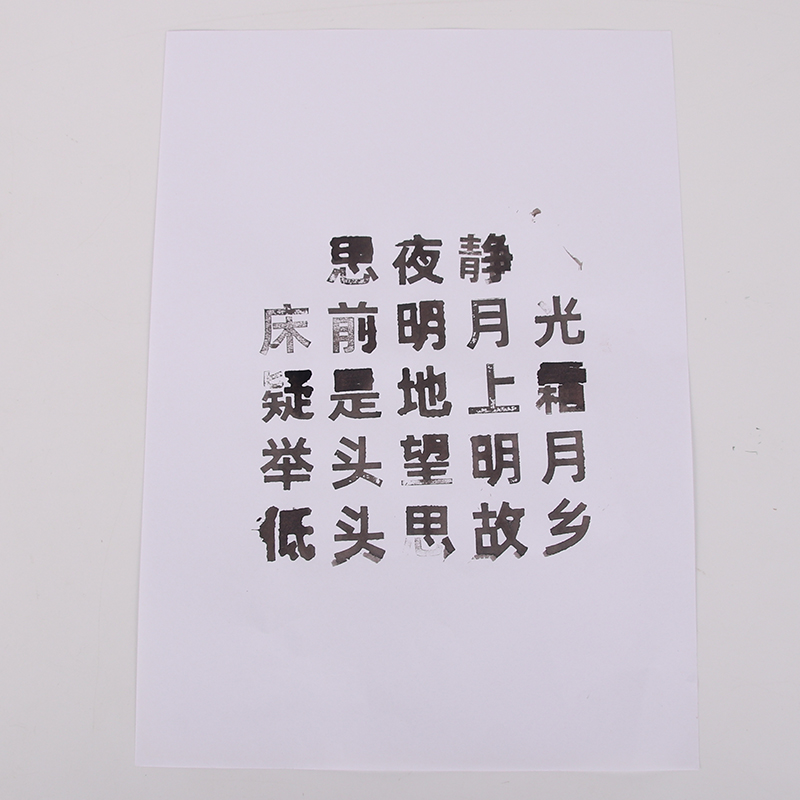 思夜静
床前明月光
疑是地上霜
举头望明月
低头思故乡